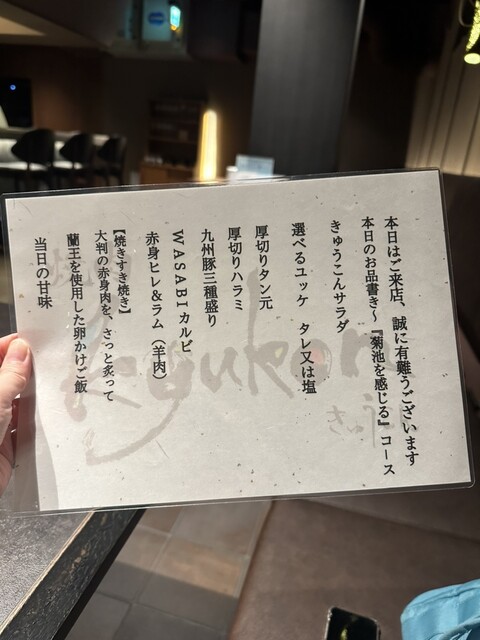 本日はご来店、誠に有難うございます
本日のお品書き～『菊池を感じる』コース
きゅうこんサラダ
選べるユッケ タレ又は塩
厚切りタン元
厚切りハラミ
九州豚三種盛り
WASABIカルビ
赤身ヒレ&ラム（羊肉）
【焼きすき焼き】
大判の赤身肉を、さっと炙って
蘭王を使用した卵かけご飯
当日の甘味
kyukon